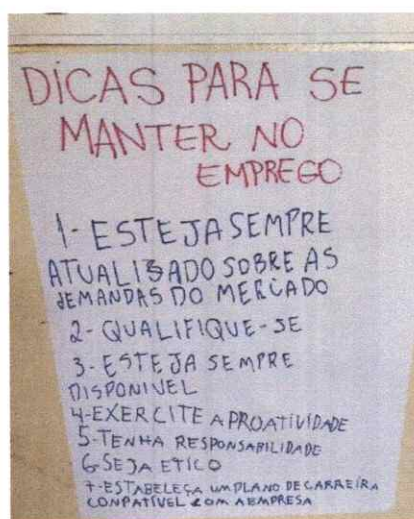 DICAS PARA SE
MANTER NO
EMPREGO
1- ESTEJA SEMPRE
ATUALIZADO SOBRE AS
DEMANDAS DO MERCADO
2- QUALIFIQUE-SE
3- ESTEJA SEMPRE
DISPONIVEL
4-EXERCITE A PROATIVIDADE
5-TENHA RESPONSABILIDADE
6-SEJA ETICO
7-ESTABELEÇA UM PLANO DE CARREIRA
CONPATÍVEL COM A EMPRESA